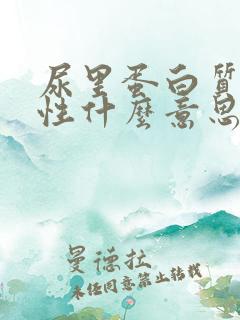 尿里蛋白質
性什麼意思
曼德拉
未经同意禁止转载